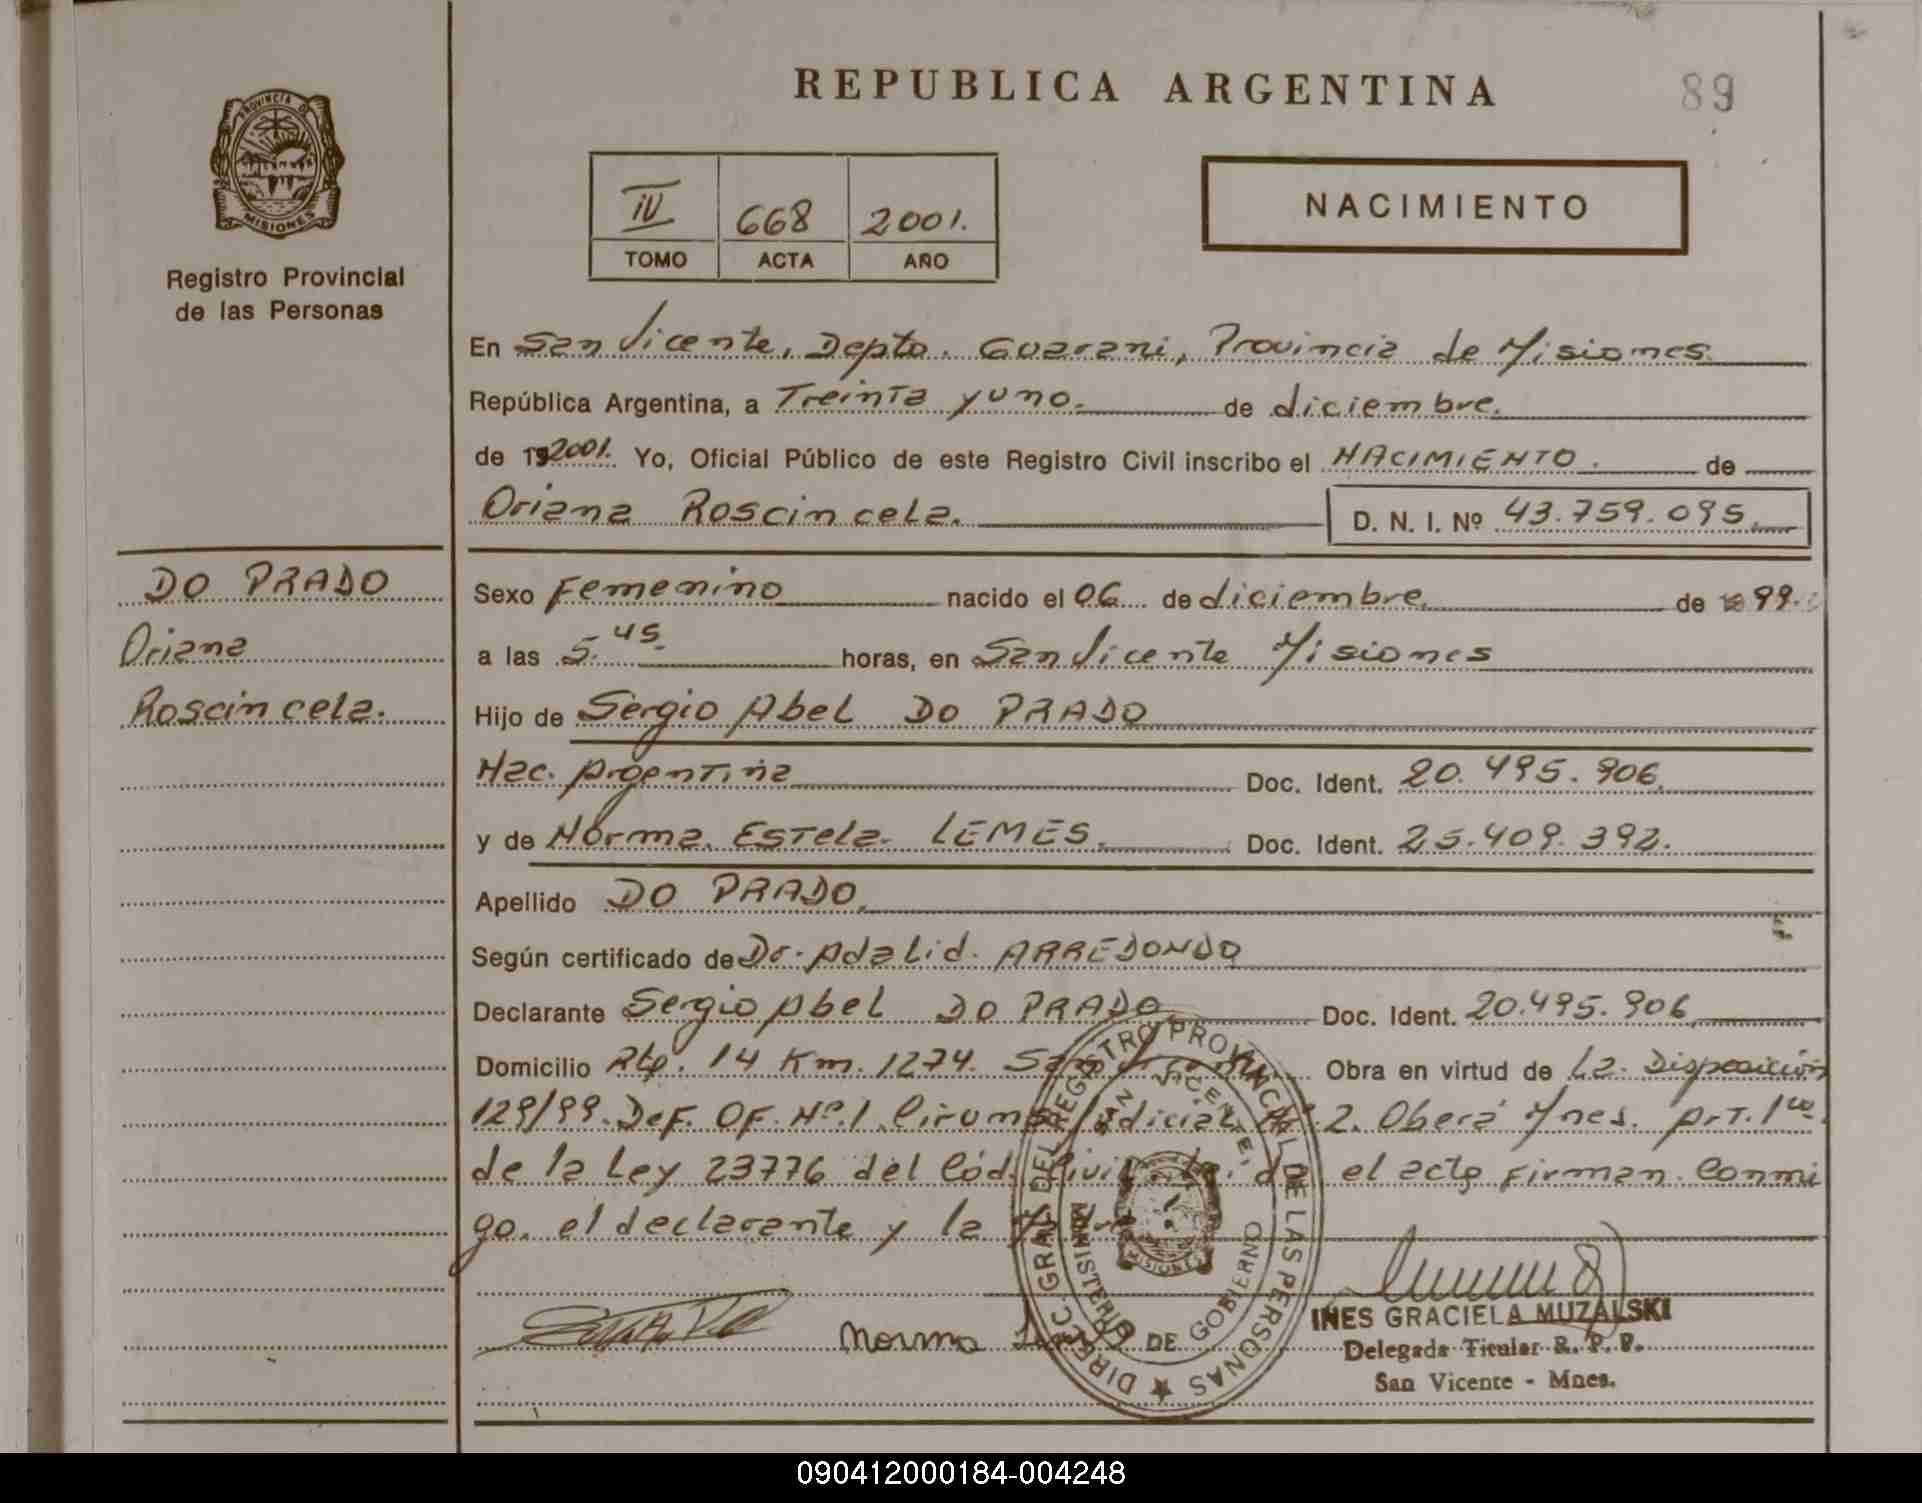 REPUBLICA ARGENTINA
89
PROVINCIA DE
MISIONES
Registro Provincial
de las Personas
IV 668 2001.
TOMO ACTA AÑO
NACIMIENTO
En San Vicente, Depto. Guarani, Provincia de Misiones
República Argentina, a Treinta y uno. de diciembre.
de 192001. Yo, Oficial Público de este Registro Civil inscribo el NACIMIENTO. de
Oriana Roscin cela. D. N. I. Nº 43.759.095.
DO PRADO
Oriana
Roscin cela.
Sexo Femenino nacido el 06 de diciembre. de 1999.
a las 5.45. horas, en San Vicente Misiones
Hijo de Sergio Abel DO PRADO
Nac. Argentina Doc. Ident. 20.495.906.
y de Norma. Estela. LEMES. Doc. Ident. 25.409.392.
Apellido DO PRADO.
Según certificado de Dr. Adalid. ARREDONDO
Declarante Sergio Abel DO PRADO Doc. Ident. 20.495.906
Domicilio 14 Km. 1274. San Obra en virtud de La Disposición
129/99. DeF. OF. Nº.1. Nº 2. Oberá Mnes. Art. 1ro.
de la Ley 23776 del Cód. Civil el acto Firman. Conmi
go. el declarante y la
Norma
DIRECC. GRAL. DEL REGISTRO PROVINCIAL DE LAS PERSONAS
SAN VICENTE
MINISTERIO DE GOBIERNO
MISIONES
INES GRACIELA MUZALSKI
Delegada Titular R. P. P.
San Vicente - Mnes.
090412000184-004248